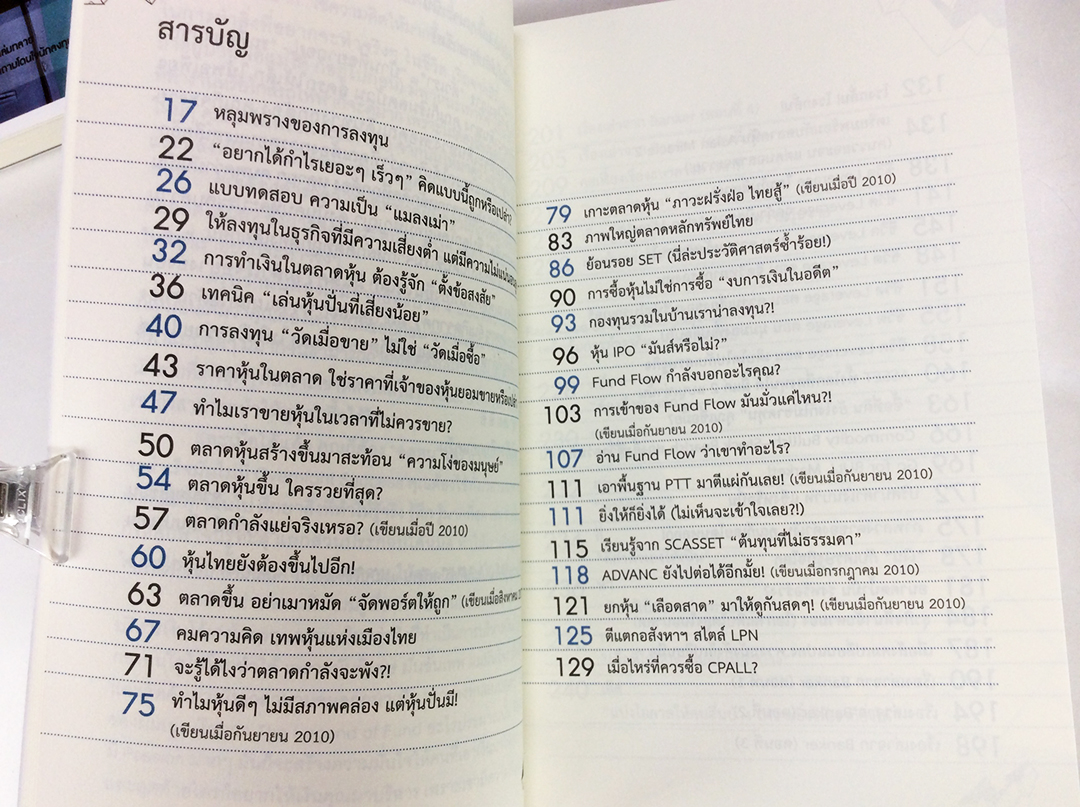 สารบัญ
17 หลุมพรางของการลงทุน
22 “อยากได้กำไรเยอะๆ เร็วๆ” คิดแบบนี้ถูกหรือเปล่า?
26 แบบทดสอบ ความเป็น “แมลงเม่า”
29 ให้ลงทุนในธุรกิจที่มีความเสี่ยงต่ำ แต่มีความไม่แน่นอน
32 การทำเงินในตลาดหุ้น ต้องรู้จัก “ตั้งข้อสงสัย”
36 เทคนิค “เล่นหุ้นปันที่เสี่ยงน้อย”
40 การลงทุน “วัดเมื่อขาย” ไม่ใช่ “วัดเมื่อซื้อ”
43 ราคาหุ้นในตลาด ใช่ราคาที่เจ้าของหุ้นยอมขายหรือ
47 ทำไมเราขายหุ้นในเวลาที่ไม่ควรขาย?
50 ตลาดหุ้นสร้างขึ้นมาสะท้อน “ความโง่ของมนุษย์”
54 ตลาดหุ้นขึ้น ใครรวยที่สุด?
57 ตลาดกำลังแย่จริงเหรอ? (เขียนเมื่อปี 2010)
60 หุ้นไทยยังต้องขึ้นไปอีก!
63 ตลาดขึ้น อย่าเมาหมัด “จัดพอร์ตให้ถูก” (เขียนเมื่อสิงหาคม
67 คมความคิด เทพหุ้นแห่งเมืองไทย
71 จะรู้ได้ไงว่าตลาดกำลังจะพัง?!
75 ทำไมหุ้นดีๆ ไม่มีสภาพคล่อง แต่หุ้นปั่นมี!
(เขียนเมื่อกันยายน 2010)
79 เกาะตลาดหุ้น “ภาวะฝรั่งฝ่อ ไทยสู้” (เขียนเมื่อปี 2010)
83 ภาพใหญ่ตลาดหลักทรัพย์ไทย
86 ย้อนรอย SET (นี่ล่ะประวัติศาสตร์ซ้ำร้อย!)
90 การซื้อหุ้นไม่ใช่การซื้อ “งบการเงินในอดีต”
93 กองทุนรวมในบ้านเราน่าลงทุน?!
96 หุ้น IPO “มันส์หรือไม่?”
99 Fund Flow กำลังบอกอะไรคุณ?
103 การเข้าของ Fund Flow มันมั่วแค่ไหน?!
(เขียนเมื่อกันยายน 2010)
107 อ่าน Fund Flow ว่าเขาทำอะไร?
111 เอาพื้นฐาน PTT มาตีแผ่กันเลย! (เขียนเมื่อกันยายน 2010)
111 ยิ่งให้ก็ยิ่งได้ (ไม่เห็นจะเข้าใจเลย?!)
115 เรียนรู้จาก SCASSET “ต้นทุนที่ไม่ธรรมดา”
118 ADVANC ยังไปต่อได้อีกมั้ย! (เขียนเมื่อกรกฎาคม 2010)
121 ยกหุ้น “เลือดสาด” มาให้ดูกันสดๆ! (เขียนเมื่อกันยายน 2010)
125 ตีแตกอสังหาฯ สไตล์ LPN
129 เมื่อไหร่ที่ควรซื้อ CPALL?